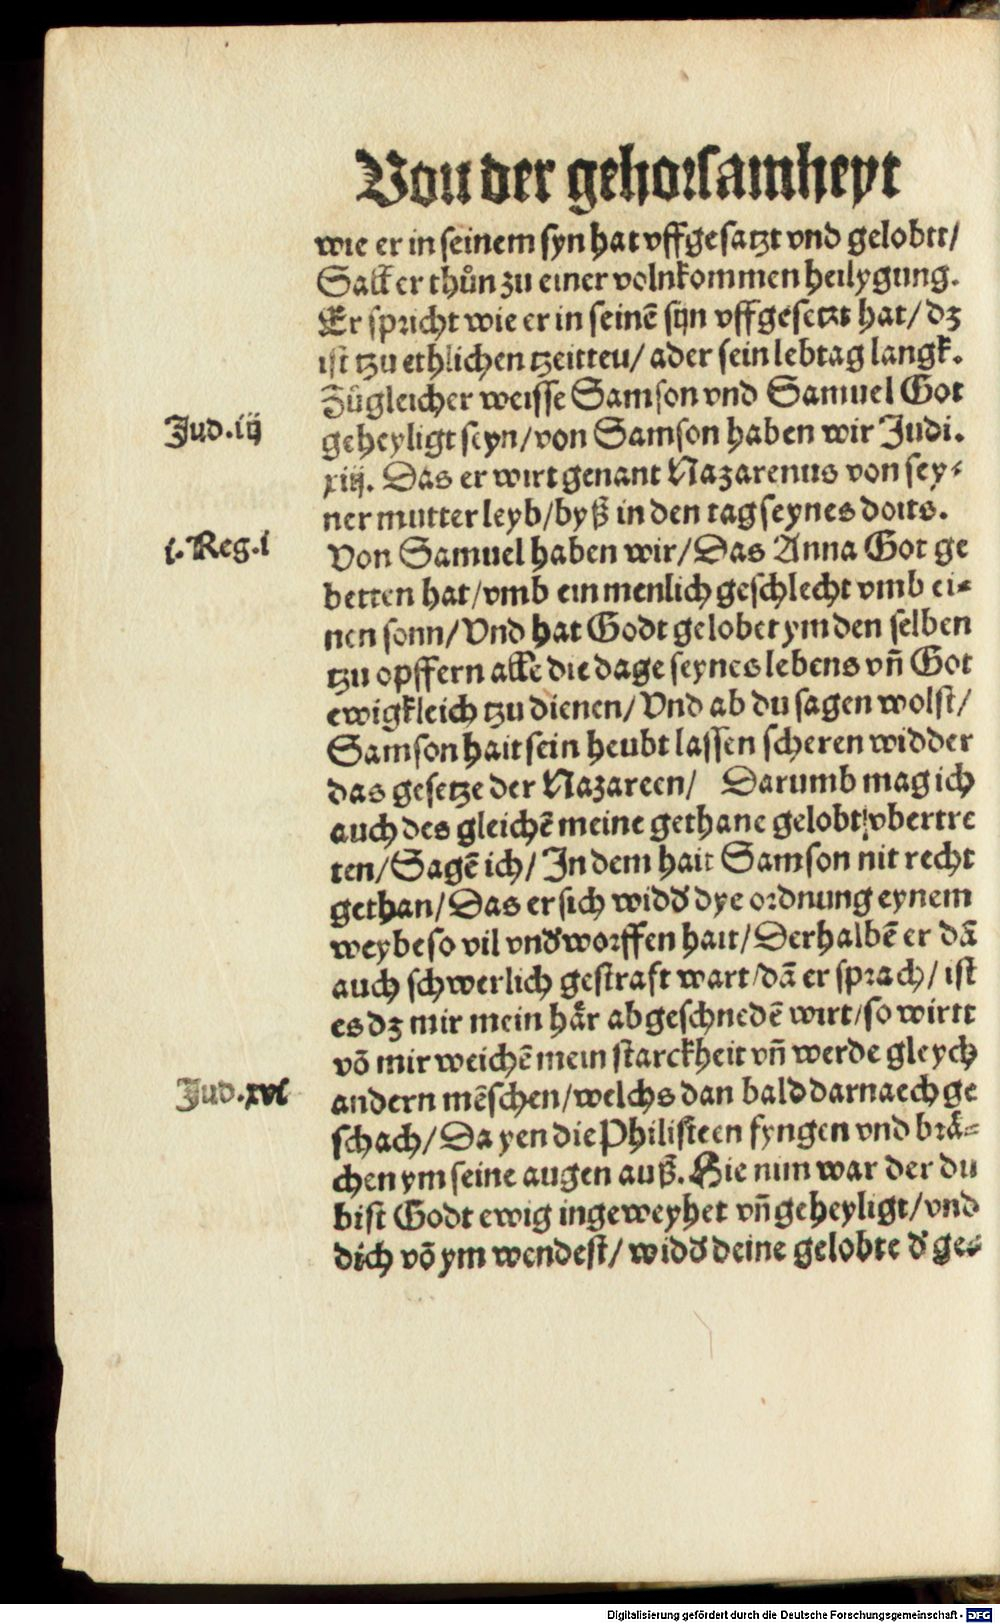 Von der gehorsamheyt
wie er in seinem syn hat vffgesatzt vnd gelobtt/
Sall er thůn zu einer volnkommen heilygung.
Er spricht wie er in seinē sijn vffgesetzt hat/ dz
ist tzu ethlichen tzeitteu/ ader sein lebtag langk.
Zügleicher weisse Samson vnd Samuel Got
Jud.iij
geheyligt seyn/von Samson haben wir Judi.
xiij. Das er wirt genant Nazarenus von sey⸗
ner mutter leyb/byß in den tag seynes doits.
i.Reg.i
Von Samuel haben wir/Das Anna Got ge
betten hat/vmb ein menlich geschlecht vmb ei⸗
nen sonn/Vnd hat Godt gelobet ym den selben
tzu opffern alle die dage seynes lebens vn̄ Got
ewigkleich tzu dienen/Vnd ab du sagen wolst/
Samson hait sein heubt lassen scheren widder
das gesetze der Nazareen/ Darumb mag ich
auch des gleichē meine gethane gelobt/vbertre
ten/Sagē ich/ In dem hait Samson nit recht
gethan/Das er sich widd̓ dye ordnung eynem
weybe so vil vnd̓worffen hait/Derhalbē er dā
auch schwerlich gestraft wart/dā er sprach/ ist
es dz mir mein hår abgeschnedē wirt/so wirtt
vō mir weichē mein starckheit vn̄ werde gleych
Jud.xvi
andern mēschen/welchs dan bald darnaech ge
schach/Da yen die Philisteen fyngen vnd brå⸗
chen ym seine augen auß. Hie nim war der du
bist Godt ewig ingeweyhet vn̄ geheyligt/vnd
dich vō ym wendest/ widd̓ deine gelobte d̓ ges⸗
Digitalisierung gefördert durch die Deutsche Forschungsgemeinschaft - DFG